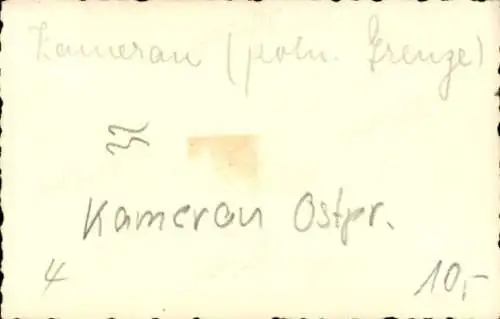 Kamerau (poln. Grenze)
Kamerau Ostpr.
4
10,-